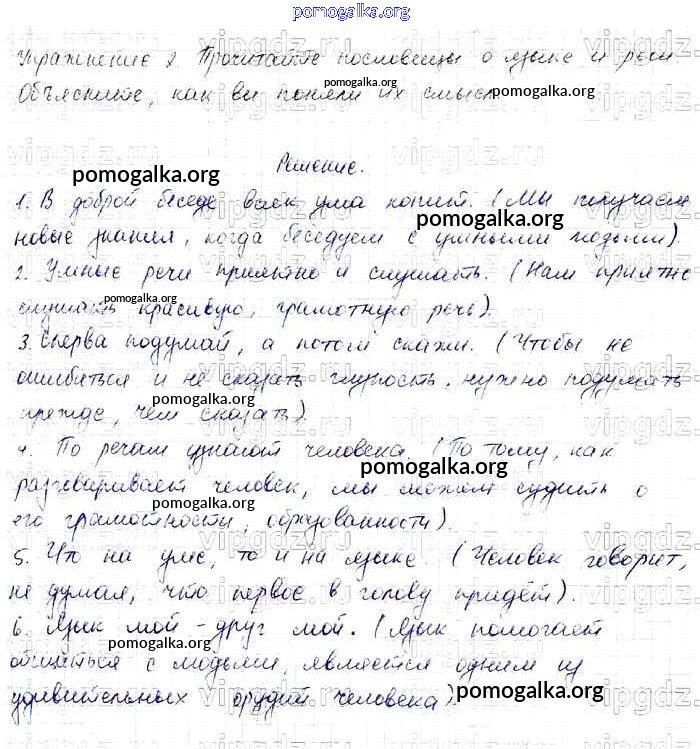 pomogalka.org
Упражнение 2. Прочитайте пословицы о языке и речи.
Объясните, как вы поняли их смысл.
Решение.
1. В доброй беседе всяк ума копит. (Мы получаем
новые знания, когда беседуем с умными людьми).
2. Умные речи приятно и слушать. (Нам приятно
слушать красивую, грамотную речь).
3. Сперва подумай, а потом скажи. (Чтобы не
ошибаться и не сказать глупость, нужно подумать
прежде, чем сказать).
4. По речам узнают человека. (По тому, как
разговаривает человек, мы можем судить о
его грамотности, образованности).
5. Что на уме, то и на языке. (Человек говорит,
не думая, что первое в голову придёт).
6. Язык мой - друг мой. (Язык помогает
общаться с людьми, является одним из
удивительных орудий человека).